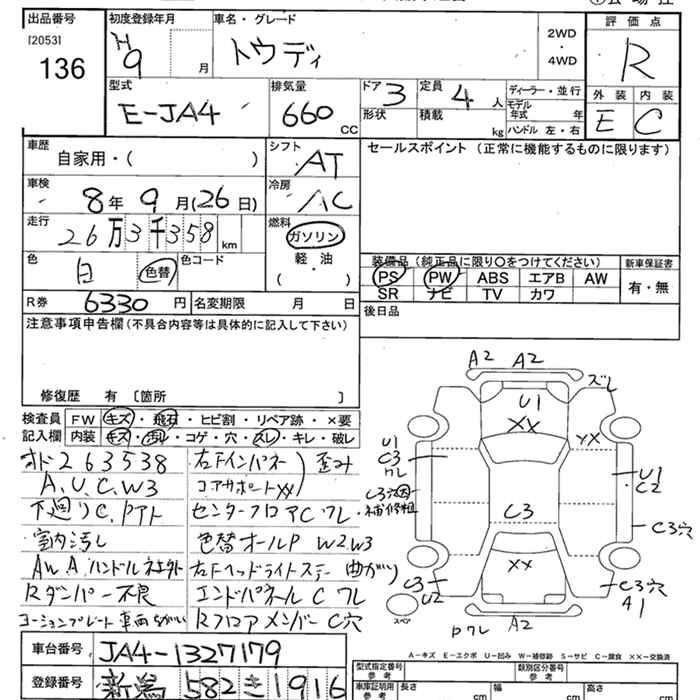 出品番号 初度登録年月 車名・グレード 評価点
[2053] 136
H9 月 トゥディ 2WD・4WD R
型式 排気量 ドア 3 定員 4人 ディーラー・並行 外装 内装
E-JA4 660cc 形状 積載 kg モデル年式 年 E C
ハンドル 左・右
車歴 シフト セールスポイント (正常に機能するものに限ります)
自家用・( ) AT
車検 冷房
8年 9月(26日) AC
走行 燃料
26万3千358km ガソリン
色 色コード 軽・油
白 色替 ( )
装備品 (純正品に限り○をつけてください) 新車保証書
PS PW ABS エアB AW 有・無
SR ナビ TV カワ
R券 6330円 名変期限 月 日 後日品
注意事項申告欄 (不具合内容等は具体的に記入して下さい)
修復歴 有 〔箇所 〕
検査員 FW キズ・飛石・ヒビ割・リペア跡・×要
記入欄 内装 キズ・汚レ・コゲ・穴・スレ・キレ・破レ
オド263538
A.U.C.W3
下廻りC.Pアト
室内汚し
AW A.ハンドル
Rダンパー不良
コーションプレート車両ちがい
右Fインパネ
コアサポートXX 歪み
センターフロアC ワレ
色替オールP W2W3
右Fヘッドライトステー曲がり
エンドパネルC ワレ
RフロアメンバーC穴
A2 A2
ズレ
U1
XX XX
U1 C3 ワレ
U1 C2
C3穴 補修粗
C3
C3穴
XX
C3 U2
C3穴 A1
スペア
Pワレ A2
A-キズ E-エクボ U-凹み W-補修跡 S-サビ C-腐食 XX-交換済
車台番号 JA4-1327179
登録番号 新潟 582 き 1916
型式指定番号 参考 類別区分番号 参考
車庫証明用 参考 長さ cm 幅 cm 高さ cm